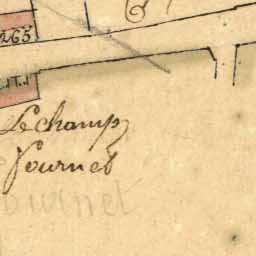 265
Le champ
Fournet
Fournet